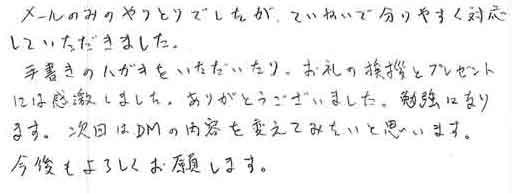 メールのみのやりとりでしたが、ていねいで分りやすく対応
していただきました。
手書きのハガキをいただいたり、お礼の挨拶とプレゼント
には感激しました。ありがとうございました。勉強になり
ます。次回はDMの内容を変えてみたいと思います。
今後もよろしくお願します。